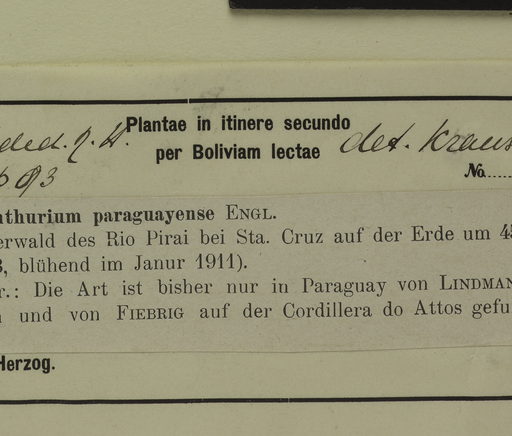 Plantae in itinere secundo
ded. det. Kraus
per Boliviam lectae
No.
nthurium paraguayense ENGL.
erwald des Rio Pirai bei Sta. Cruz auf der Erde um 45
3, blühend im Janur 1911).
r.: Die Art ist bisher nur in Paraguay von LINDMAN
n und von FIEBRIG auf der Cordillera do Attos gefu
Herzog.